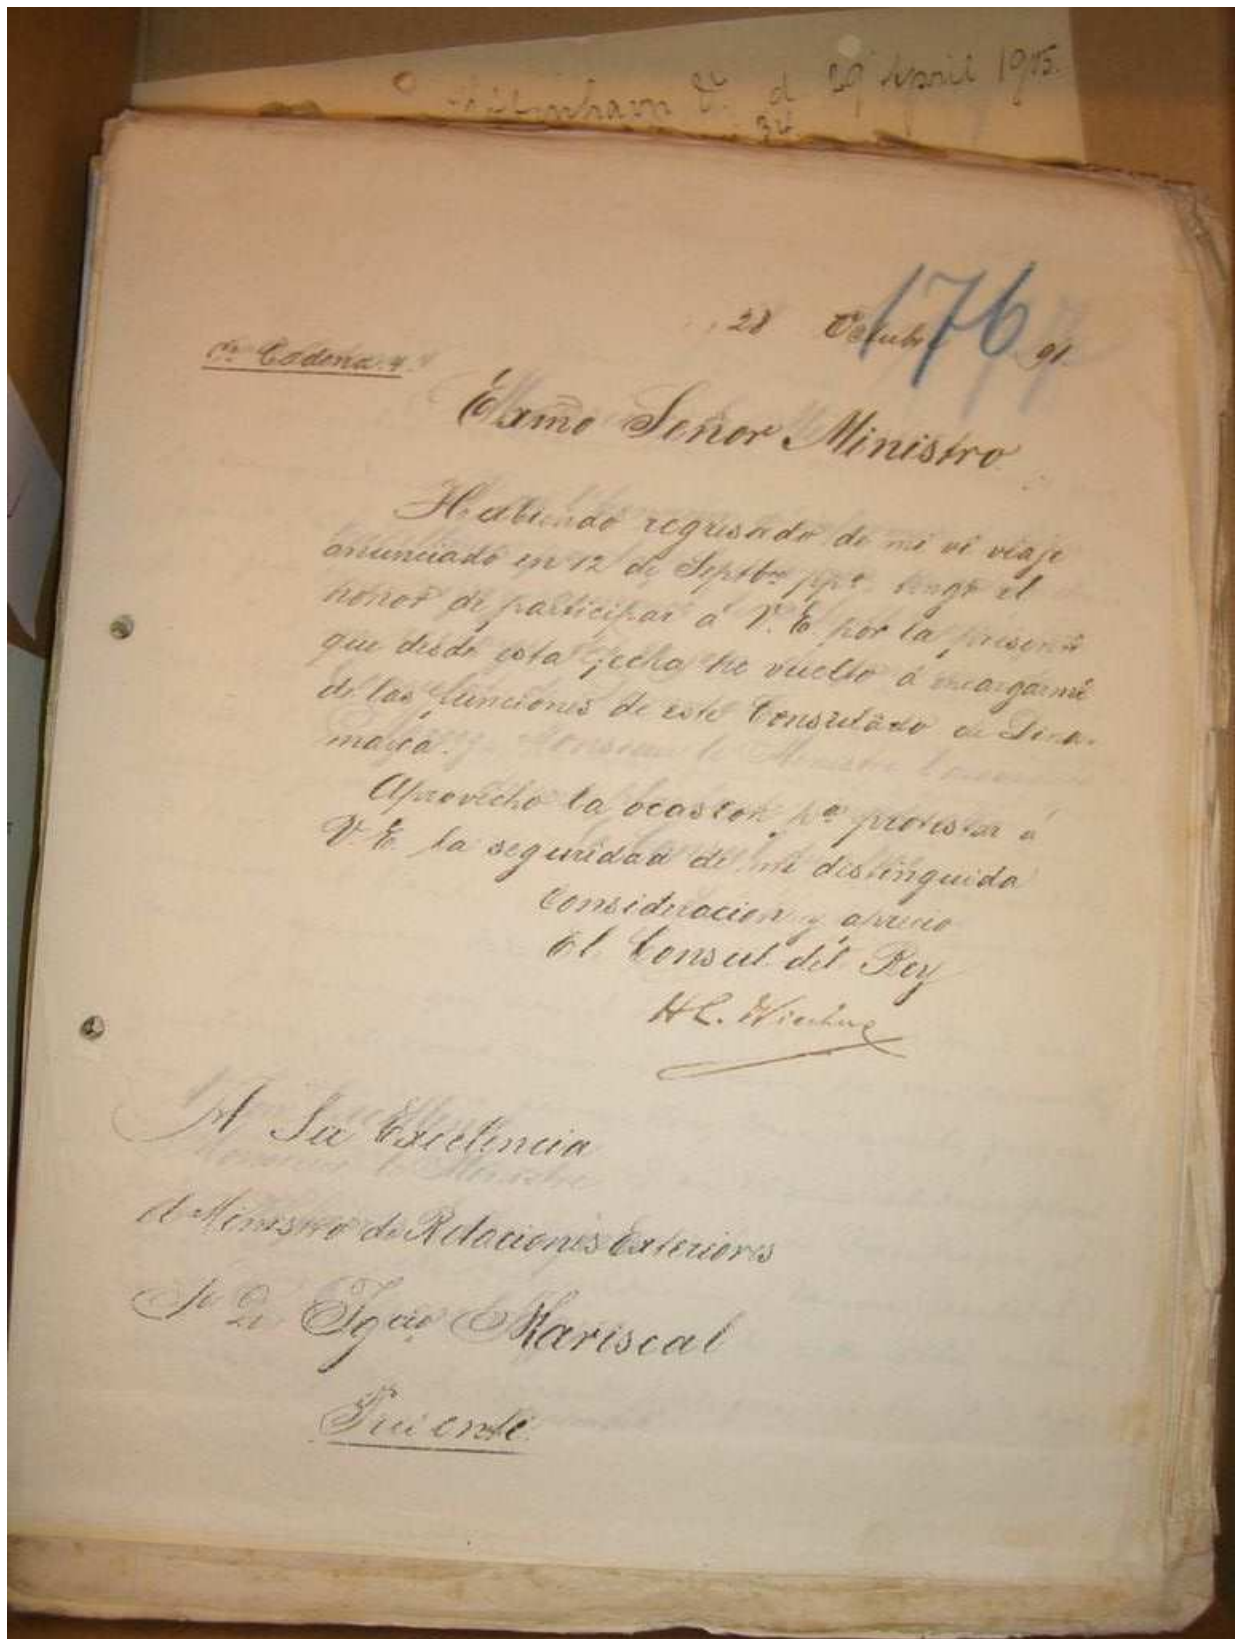 29 April 1915.
34
176
28 Octubre 91.
Cadena 4
Exmo Señor Ministro
Habiendo regresado de mi viaje
anunciado en 12 de Septbre ppo. tengo el
honor de participar á V. E. por la presente
que desde esta fecha he vuelto á encargarme
de las funciones de este Consulado de Dina-
marca.
Aprovecho la ocasion pa protestar á
V. E. la seguridad de mi distinguida
Consideracion y aprecio
El Consul del Rey
H.C.
A Su Excelencia
el Ministro de Relaciones Exteriores
Sr Dn Igcio Mariscal
Presente